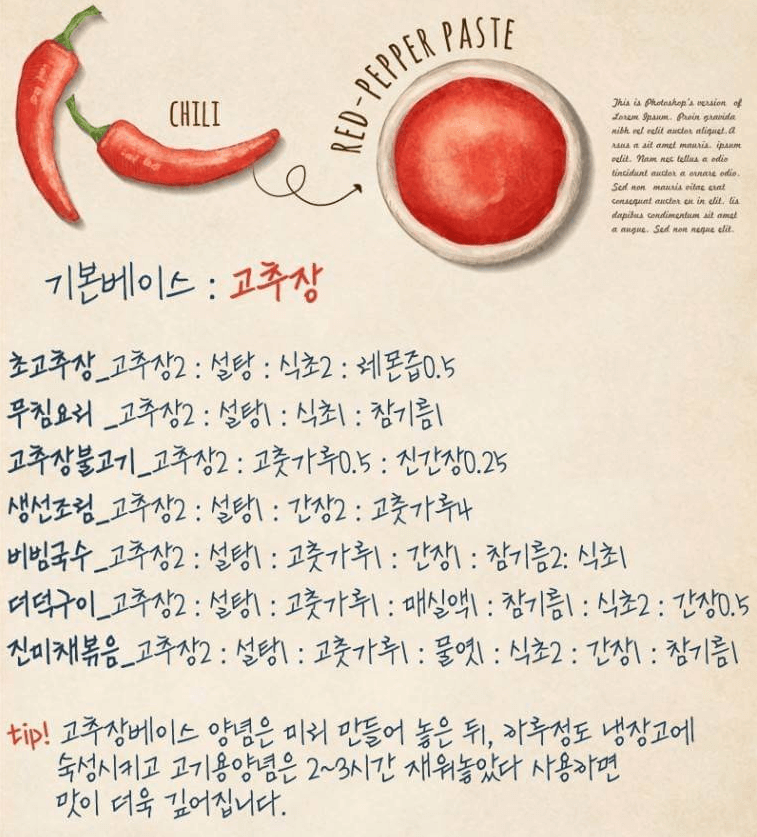 CHILI
RED-PEPPER PASTE
This is Photoshop's version of
Lorem Ipsum. Proin gravida
nibh vel velit auctor aliquet. A
rsus a sit amet mauris. ipsum
velit. Nam nec tellus a odio
tincidunt auctor a ornare odio.
Sed non mauris vitae erat
consequat auctor eu in elit. lis
dapibus condimentum sit amet
a augue. Sed non neque elit.
기본베이스 : 고추장
초고추장_고추장2 : 설탕 : 식초2 : 레몬즙0.5
무침요리 _고추장2 : 설탕1 : 식초1 : 참기름1
고추장불고기_고추장2 : 고춧가루0.5 : 진간장0.25
생선조림_고추장2 : 설탕1 : 간장2 : 고춧가루4
비빔국수_고추장2 : 설탕1 : 고춧가루1 : 간장1 : 참기름2: 식초1
더덕구이_고추장2 : 설탕1 : 고춧가루1 : 매실액1 : 참기름1 : 식초2 : 간장0.5
진미채볶음_고추장2 : 설탕1 : 고춧가루1 : 물엿1 : 식초2 : 간장1 : 참기름1
tip! 고추장베이스 양념은 미리 만들어 놓은 뒤, 하루정도 냉장고에
숙성시키고 고기용양념은 2~3시간 재워놓았다 사용하면
맛이 더욱 깊어집니다.